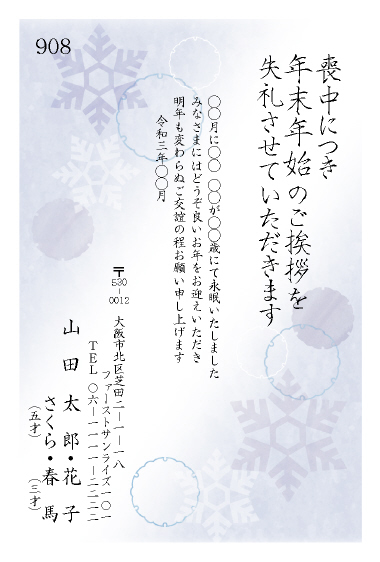 908
喪中につき
年末年始のご挨拶を
失礼させていただきます
〇〇月に〇〇 〇〇が〇〇歳にて永眠いたしました
みなさまにはどうぞ良いお年をお迎えいただき
明年も変わらぬご交誼の程お願い申し上げます
令和三年〇〇月
〒530-0012
大阪市北区芝田二-一-一八
ファーストサンライズ一〇一
TEL 〇六-一一一一-二二二二
山田太郎・花子
さくら・春馬
(五才) (三才)